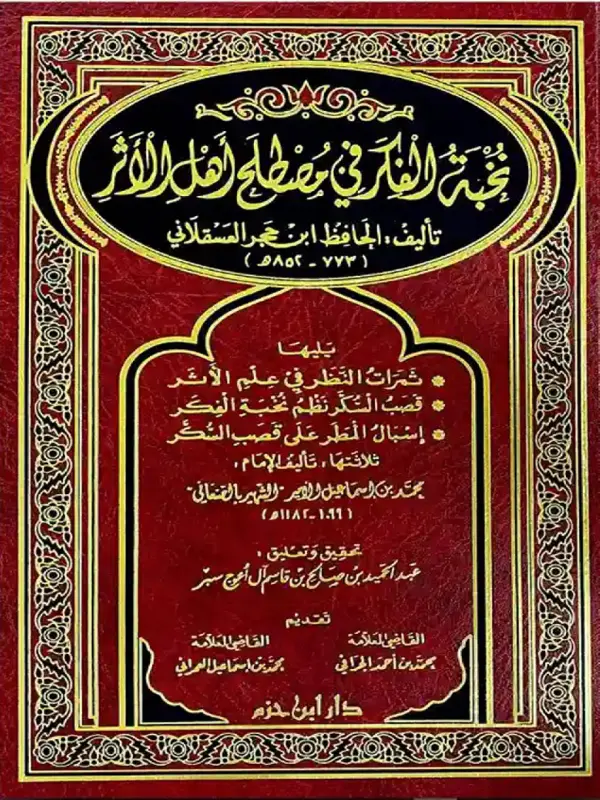 نخبة الفكر في مصطلح أهل الأثر
تأليف: الحافظ ابن حجر العسقلاني
(٧٧٣ - ٨٥٢ه)
يليها
* ثمرات النظر في علم الأثر
* قصب السكر نظم نخبة الفكر
* إسبال المطر على قصب السكر
ثلاثتها، تأليف الإمام:
محمد بن إسماعيل الأمير "الشهير بالصنعاني"
(١٠٩٩ - ١١٨٢ه)
تحقيق وتعليق:
عبد الحميد بن صالح بن قاسم آل أعوج سبر
تقديم
القاضي العلامة
محمد بن أحمد الجرافي
القاضي العلامة
محمد بن إسماعيل العمراني
دار ابن حزم